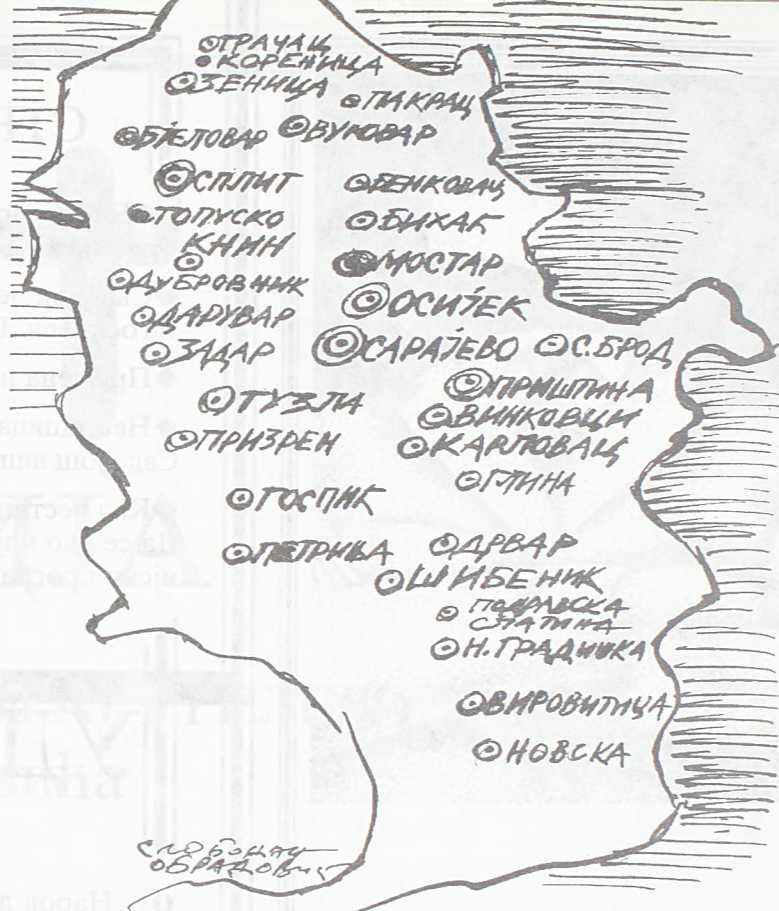 ГРАЧАЦ
КОРЕНИЦА
ЗЕНИЦА
ПАКРАЦ
БЈЕЛОВАР
ВУКОВАР
СПЛИТ
БЕНКОВАЦ
ТОПУСКО
БИХАЋ
КНИН
МОСТАР
ДУБРОВНИК
ОСИЈЕК
ДАРУВАР
САРАЈЕВО
С.БРОД
ЗАДАР
ПРИШТИНА
ТУЗЛА
ВИНКОВЦИ
ПРИЗРЕН
КАРЛОВАЦ
ГЛИНА
ГОСПИЋ
ДРВАР
ПЕТРИЊА
ШИБЕНИК
ПОДРАВСКА
СЛАТИНА
Н.ГРАДИШКА
ВИРОВИТИЦА
НОВСКА
СЛОБОДАН
ОБРАДОВИЋ